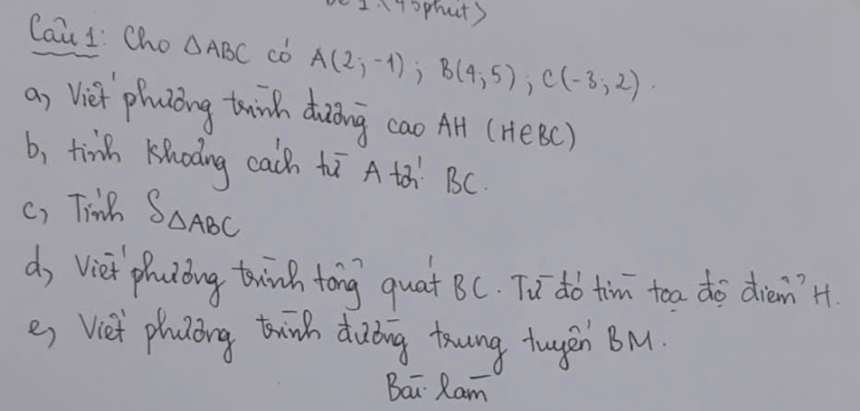 1 (45 phút)
Câu 1: Cho △ABC có A(2;-1); B(4;5); C(-3;2).
a, Viết phương trình đường cao AH (H∈BC)
b, tính khoảng cách từ A tới BC.
c, Tính S△ABC
d, Viết phương trình tổng quát BC. Từ đó tìm toạ độ điểm H.
e, Viết phương trình đường trung tuyến BM.
Bài làm